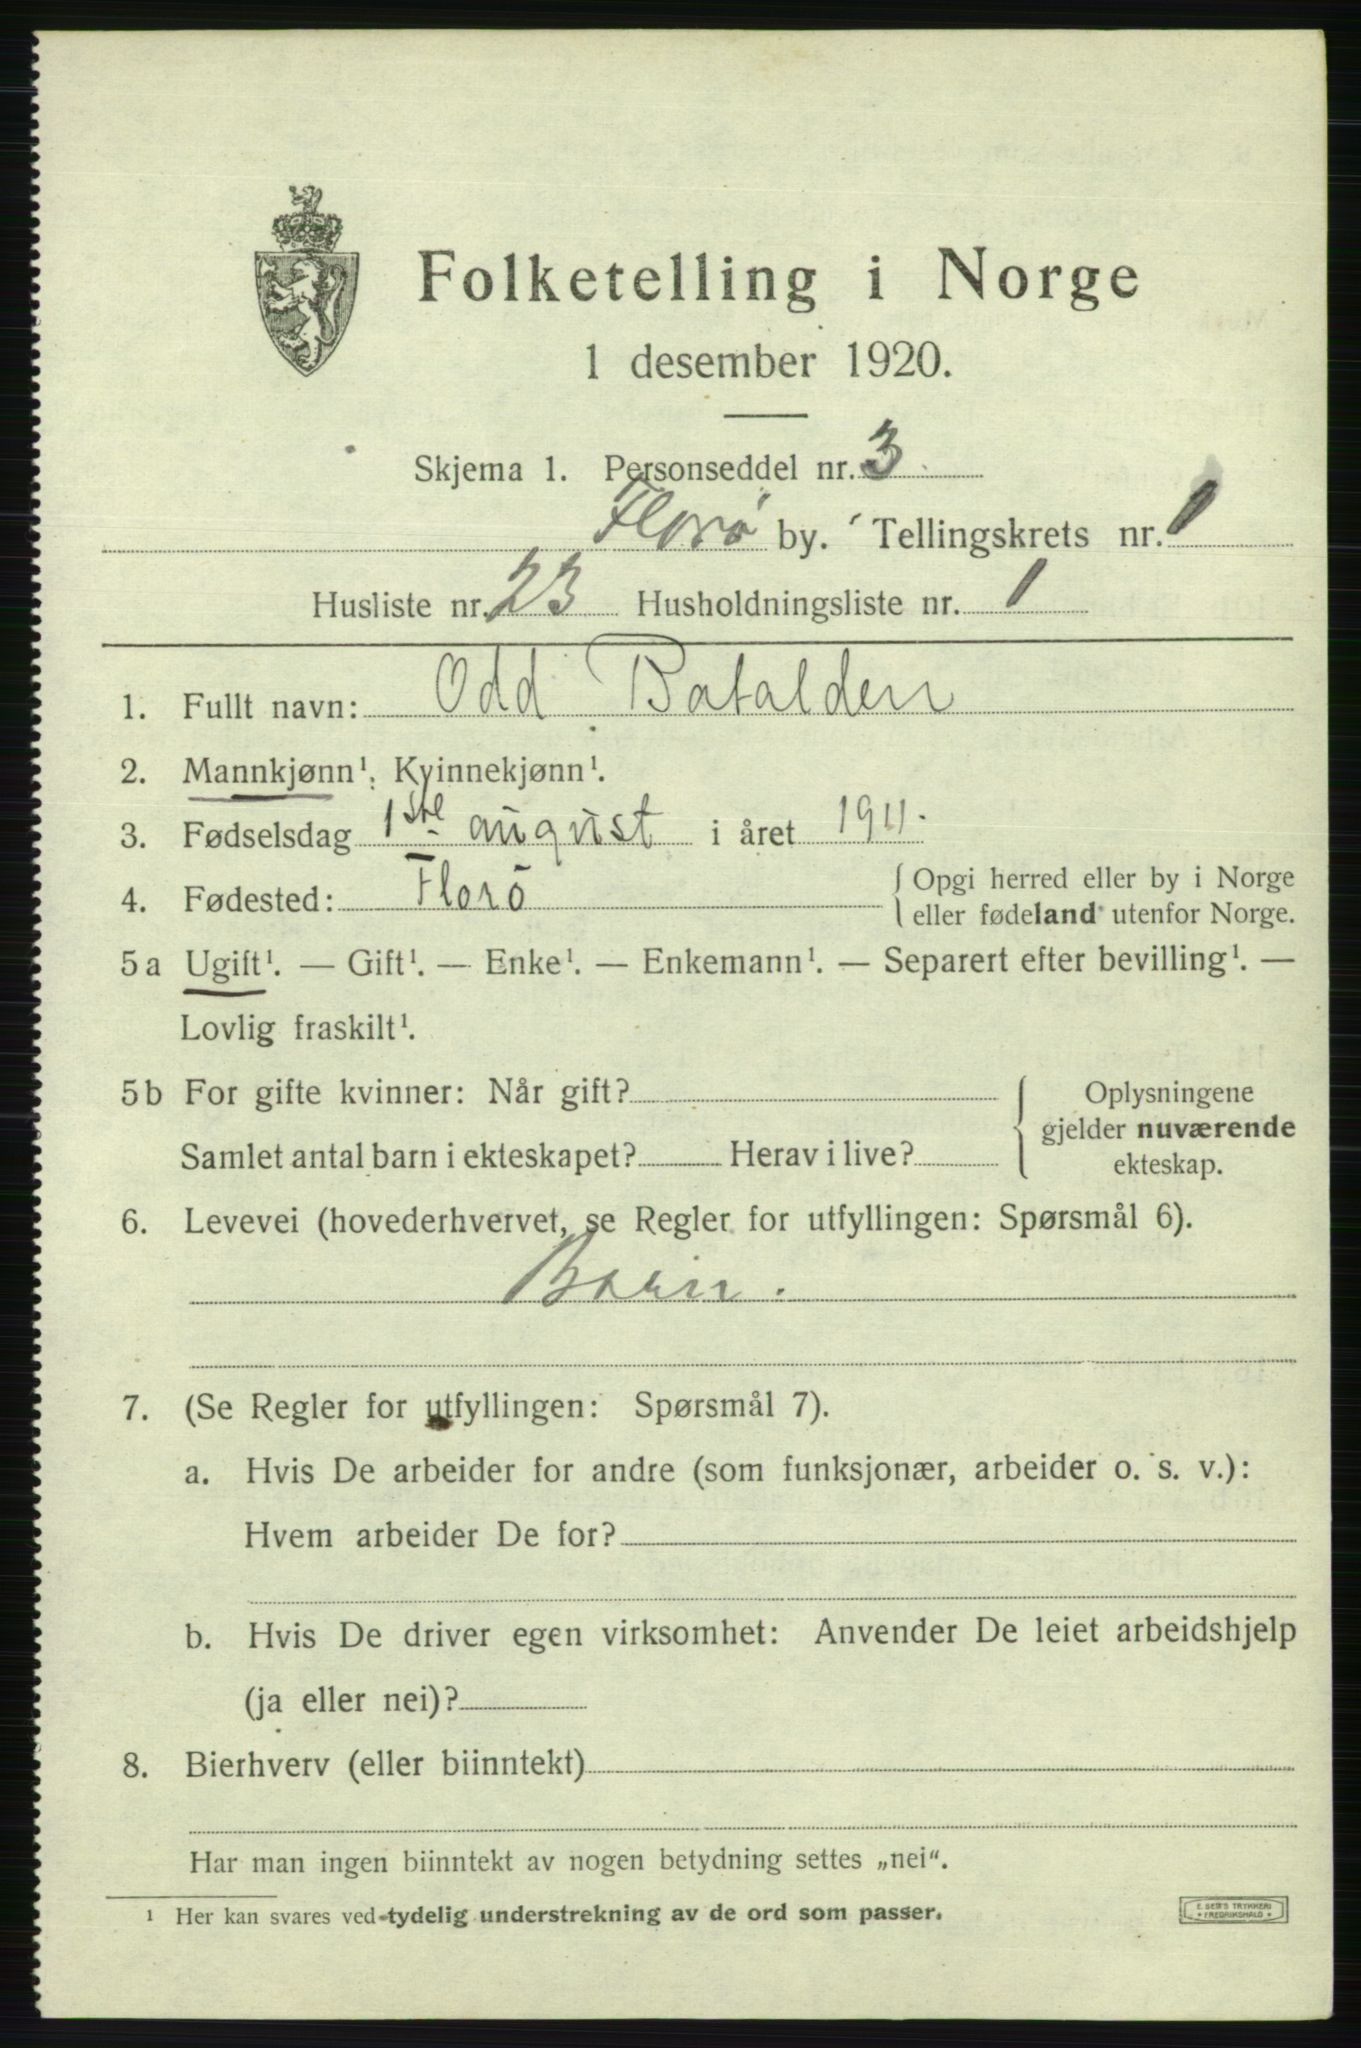 Folketelling i Norge
1 desember 1920.
Skjema 1. Personseddel nr. 3
Florø by. Tellingskrets nr. 1
Husliste nr. 23 Husholdningsliste nr. 1
1. Fullt navn: Odd Batalden
2. Mannkjønn¹. Kvinnekjønn¹.
3. Fødselsdag 1ste august i året 1911.
4. Fødested: Florö { Opgi herred eller by i Norge
eller fødeland utenfor Norge.
5a Ugift¹. — Gift¹. — Enke¹. — Enkemann¹. — Separert efter bevilling¹. —
Lovlig fraskilt¹.
5b For gifte kvinner: Når gift? { Oplysningene
gjelder nuværende
Samlet antal barn i ekteskapet? Herav i live? ekteskap.
6. Levevei (hovederhvervet, se Regler for utfyllingen: Spørsmål 6).
Barn.
7. (Se Regler for utfyllingen: Spørsmål 7).
a. Hvis De arbeider for andre (som funksjonær, arbeider o. s. v.):
Hvem arbeider De for?
b. Hvis De driver egen virksomhet: Anvender De leiet arbeidshjelp
(ja eller nei)?
8. Bierhverv (eller biinntekt)
Har man ingen biinntekt av nogen betydning settes „nei“.
¹ Her kan svares ved tydelig understrekning av de ord som passer.
E. SEM'S TRYKKERI
• FREDRIKSHALD •